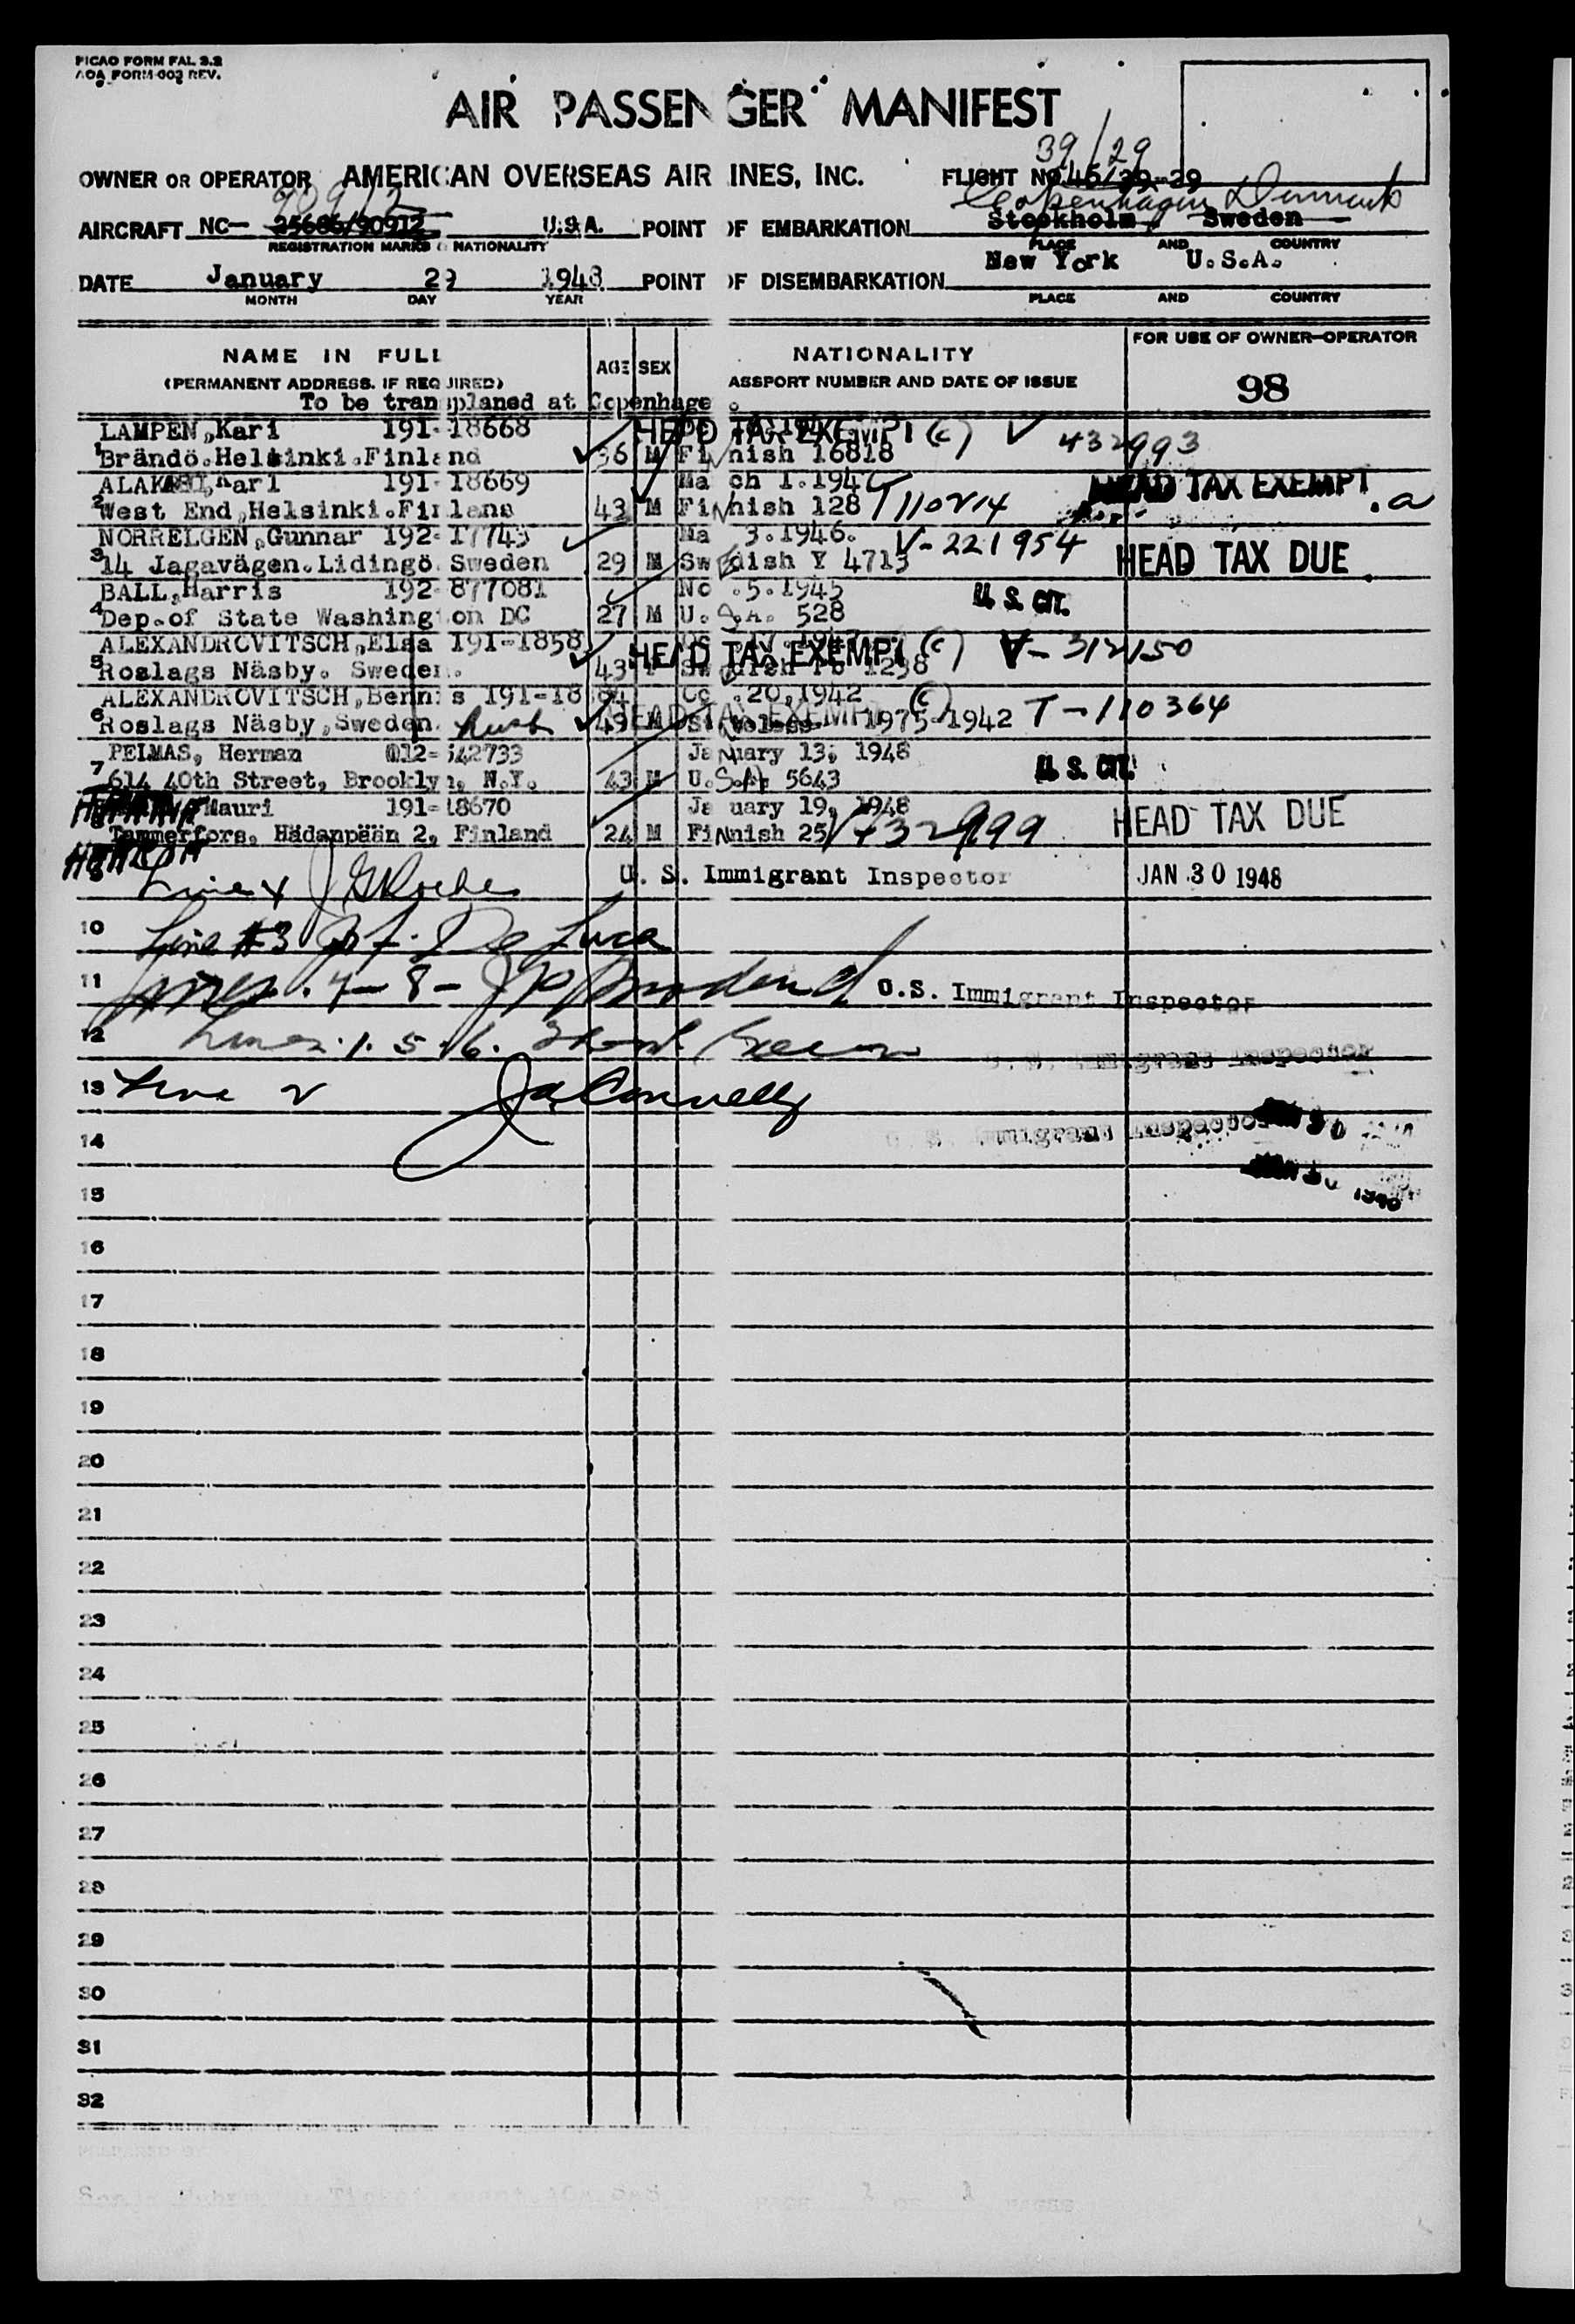 PICAO FORM FAL 2.2
AOA FORM-002 REV.
AIR PASSENGER MANIFEST
39/29
OWNER OR OPERATOR AMERICAN OVERSEAS AIRLINES, INC. FLIGHT NO 45/39-29
90912 Copenhagen Denmark
AIRCRAFT NC- 25686/90912 U.S.A. POINT OF EMBARKATION Stockholm, Sweden
REGISTRATION MARKS NATIONALITY PLACE AND COUNTRY
New York U.S.A.
DATE January 29 1948 POINT OF DISEMBARKATION
MONTH DAY YEAR PLACE AND COUNTRY
NAME IN FULL AGE SEX NATIONALITY FOR USE OF OWNER-OPERATOR
(PERMANENT ADDRESS, IF REQUIRED) ASSPORT NUMBER AND DATE OF ISSUE 98
To be transplaned at Copenhage.
LAMPEN, Kari 191-18668 HEAD TAX EXEMPT (c) V 432993
1 Brändö.Helsinki.Finland 36 M Finnish 16818
191-18669 Ma ch 1.194 HEAD TAX EXEMPT
2 West End, Helsinki.Finland 43 M Finnish 128 T110214 .a
NORRELGEN, Gunnar 192-17745 Ma 3.1946. V-221954 HEAD TAX DUE
3 14 Jagavägen.Lidingö Sweden 29 M Swedish Y 4713
BALL, Harris 192-877081 No .5.1945 U.S. CIT.
4 Dep.of State Washington DC 27 M U.S.A. 528
ALEXANDROVITSCH, Elsa 191-1858 HEAD TAX EXEMPT (c) V-312150
5 Roslags Näsby. Sweden. 43 Swedish 1238
ALEXANDROVITSCH, Bennis 191-18 Oc .20,1942 (c)
6 Roslags Näsby, Sweden. 49 M HEAD TAX EXEMPT 1975-1942 T-110364
PEIMAS, Herman 012-542733 January 13, 1948 U.S. CIT.
7 614 40th Street, Brooklyn, N.Y. 43 M U.S.A. 5643
Mauri 191-18670 Ja uary 19, 1948 HEAD TAX DUE
Tammerfors, Hädanpään 2, Finland 24 M Finnish 25 V432999
Line 4 J G Roche U. S. Immigrant Inspector JAN 30 1948
10 Line #3 De Luca
11 Lines 7-8- U.S. Immigrant Inspector
12 Lines 1. 5. 6. U. S. Immigrant Inspector
13 Line 2 Ja Connelly
14 U. S. Immigrant Inspector
15
16
17
18
19
20
21
22
23
24
25
26
27
28
29
30
31
32
PAGE 1 OF 1 PAGES